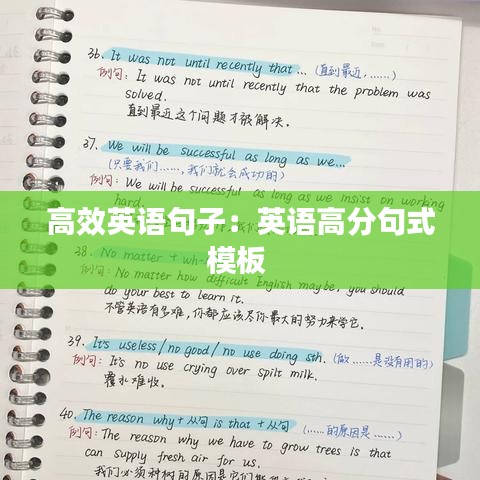 36. It was not until recently that ... (直到最近, ......)
例句: It was not until recently that the problem was
solved.
直到最近这个问题才被解决.
37. We will be successful as long as we...
(只要我们......, 我们就会成功的)
例句: We will be successful as long as we insist on working
hard.
高效英语句子：英语高分句式
模板
38. No matter + wh-
No matter how difficult English may be, you should
do your best to learn it.
不管英语有多难, 你都应该尽你最大的努力来学它.
39. It's useless/no good/no use doing sth. (做......是没有用的)
例句: It's no use crying over spilt milk.
覆水难收.
40. The reason why+从句 is that +从句 (......的原因是......)
例句: The reason why we have to grow trees is that
can supply fresh air for us.
我们必须种树的原因是它们